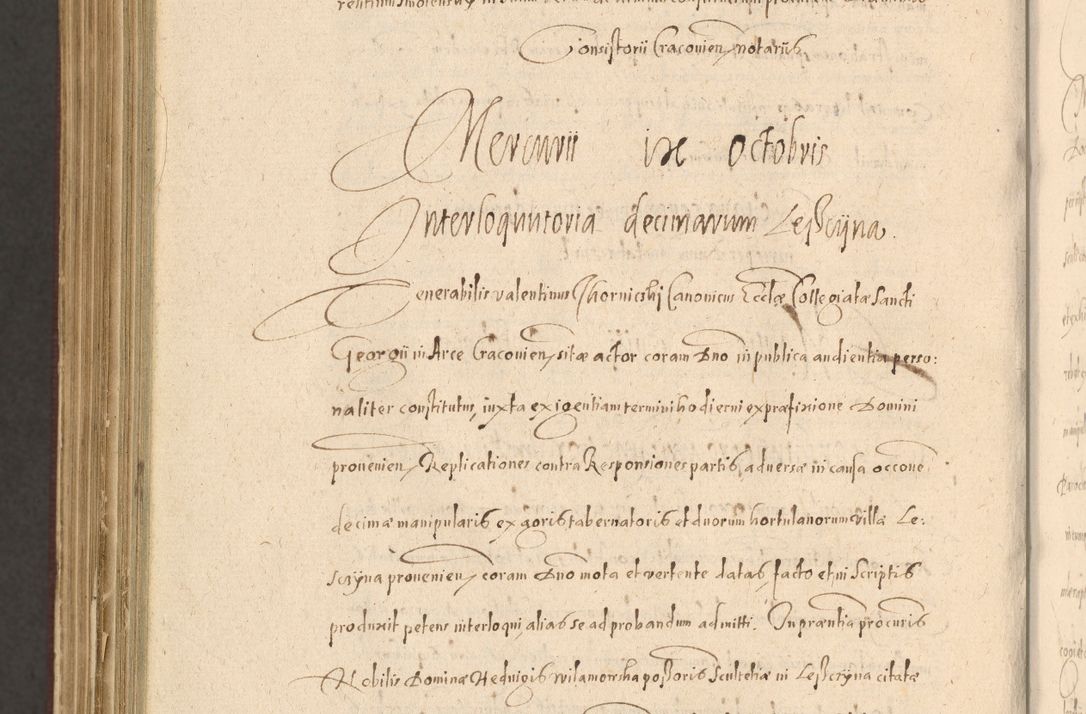 Consistorii Cracovien notariis
Mercurii ix octobris
Interloquutoria decimarum Leßcÿna.
Venerabilis valentinus Thornicskj Canonicus Ecclæ Collegiatæ Sancti
Georgii in Arce Cracovien, sitæ actor coram Dno in publica audientia perso:
naliter constitutus, iuxta exigentiam termini hodierni ex præfixione Domini
provenien, Replicationes contra Responsiones partis adversæ in causa occone
decimæ manipularis ex agoris tabernatoris et duorum hortulanorum villæ Le:
sczÿna provenien, coram Dno mota et vertente datas facto et in Scriptis
produxit petens interloqui, alias se ad probandum admitti. In præntia procuris
Nobilis Dominæ Hedvigis wilamowska possoris Scultetiæ in Leßczÿna citatæ